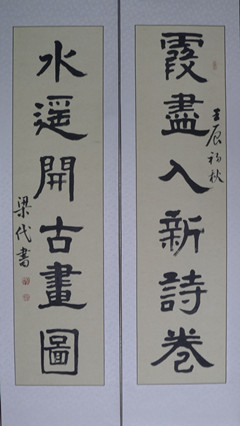 霞盡入新詩卷
壬辰初秋
水遥開古畫圖
梁代書